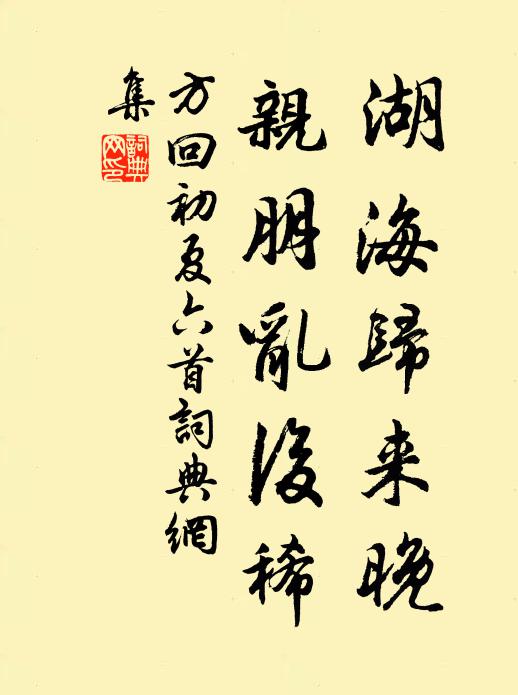 湖海歸来晚
親朋亂後稀
方回初夏六首詞典網
集
詞典
网印